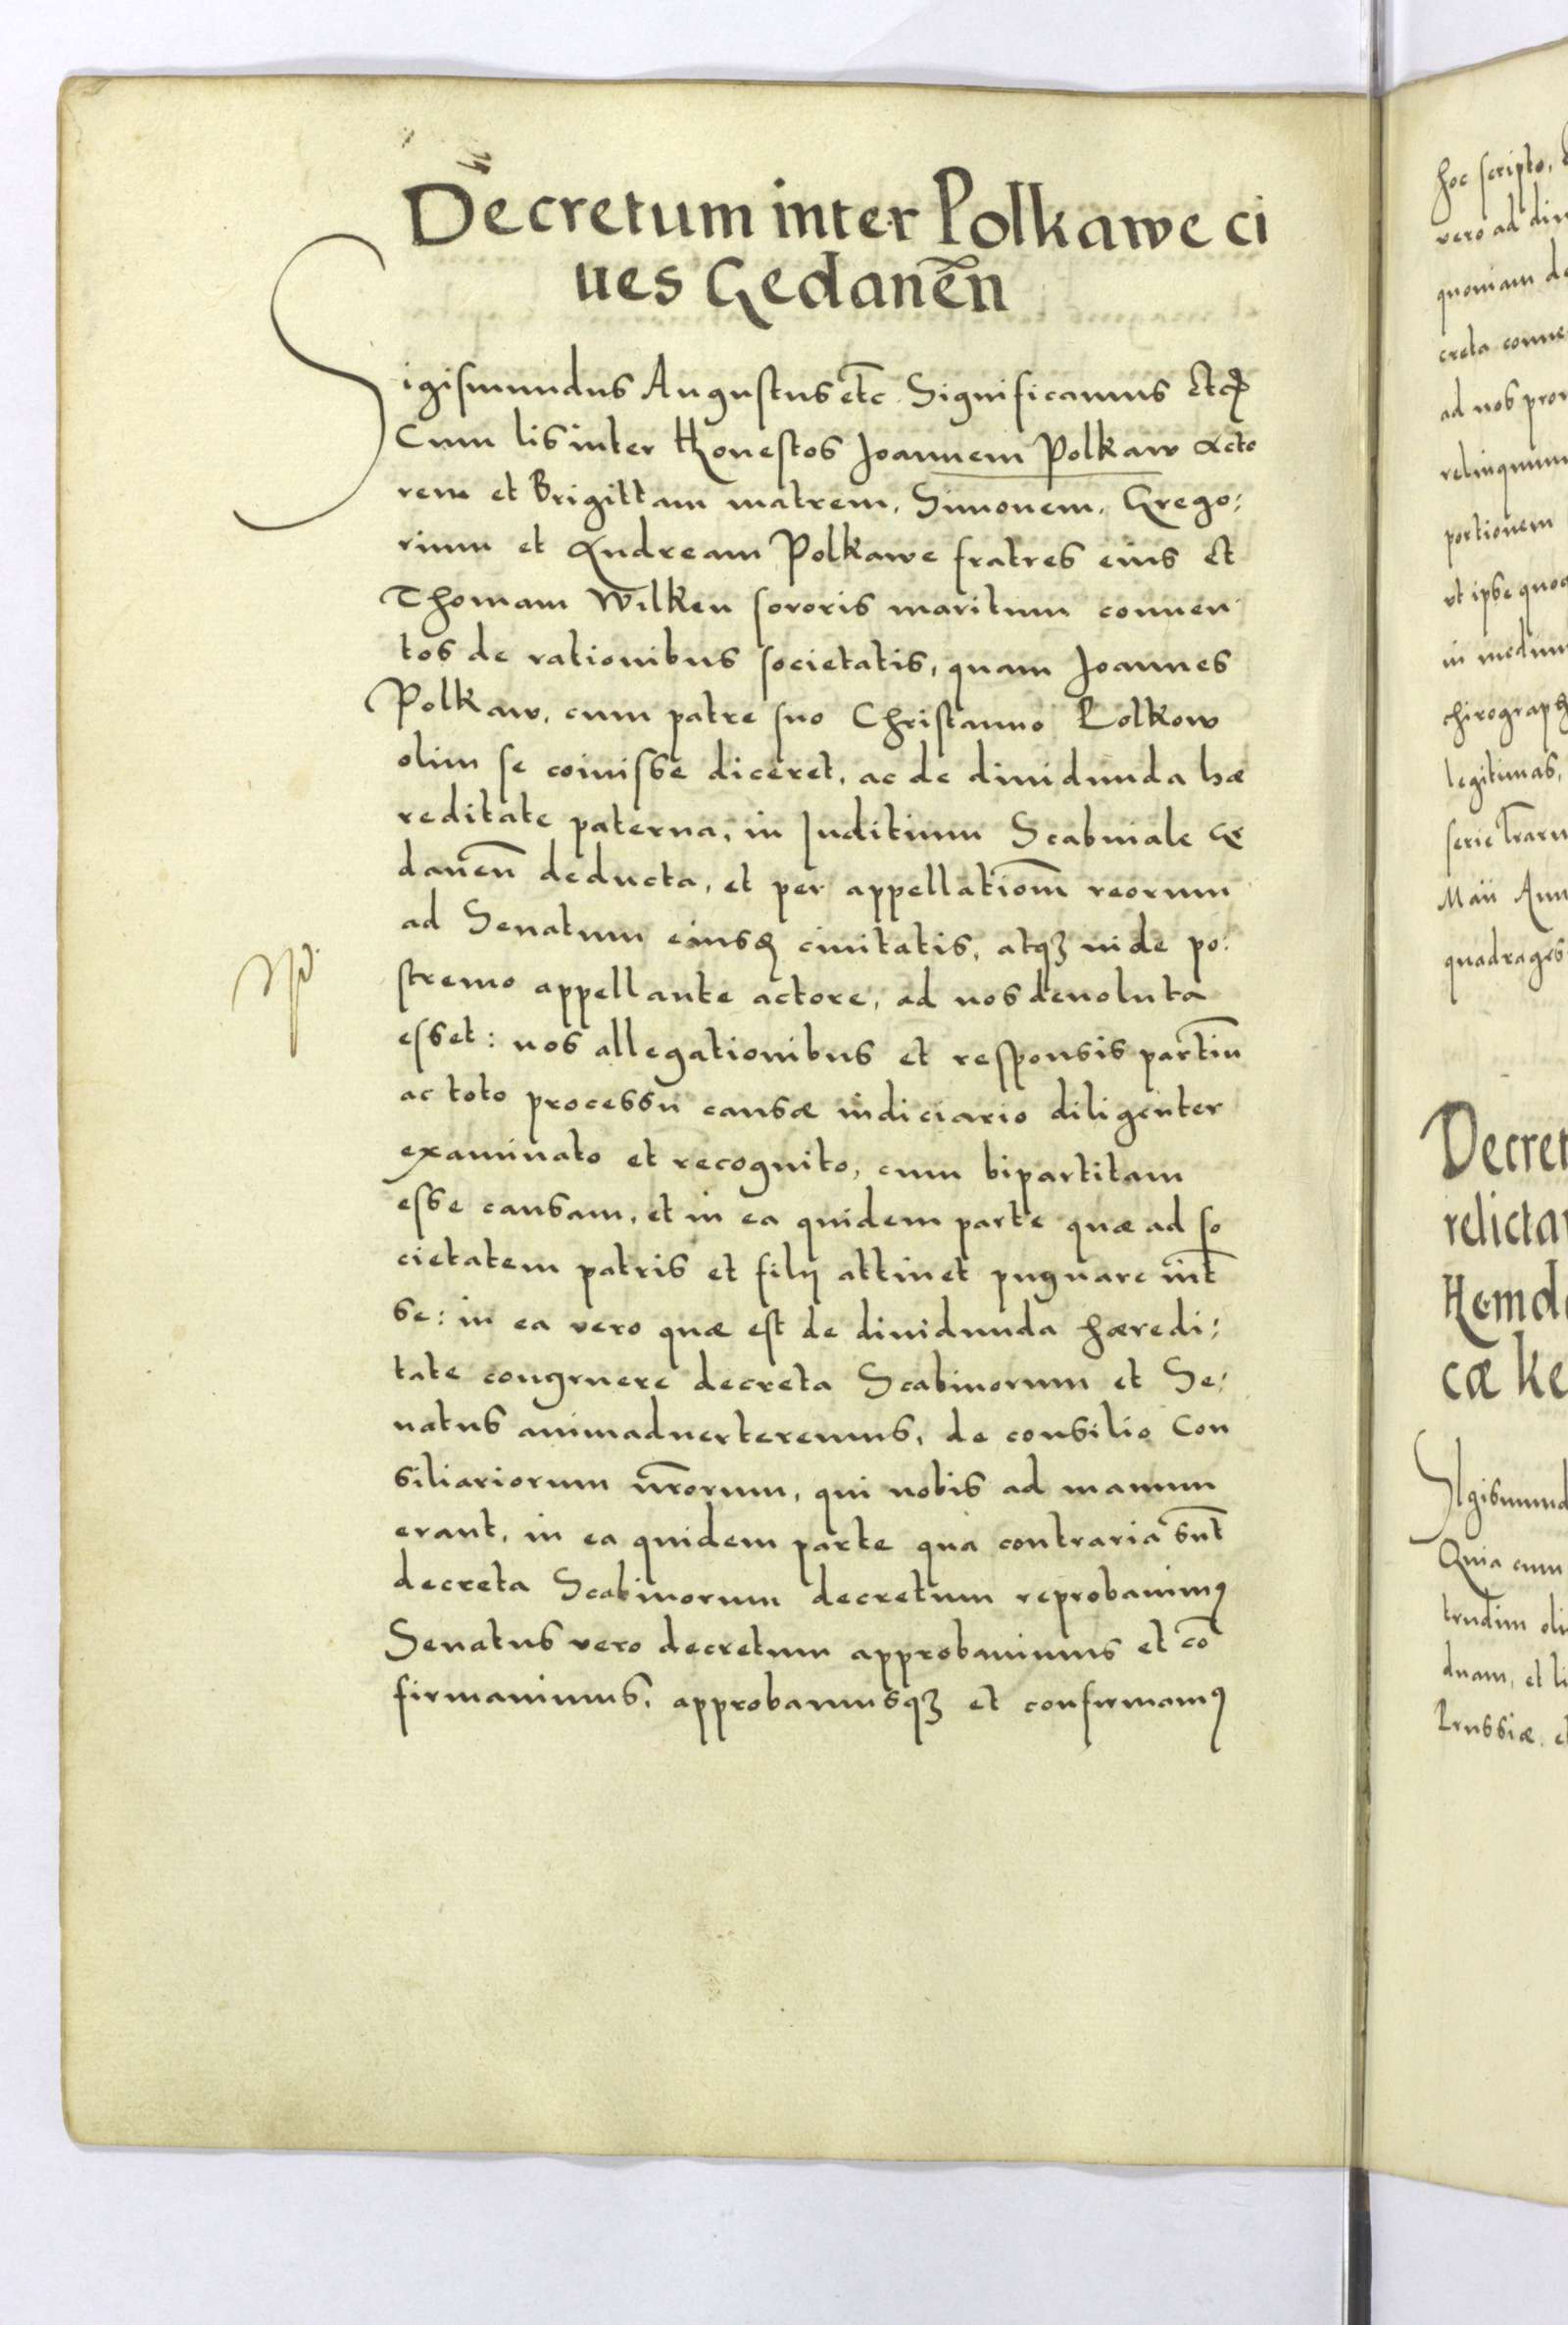 Decretum inter Polkawe ci
ues Gedanen̄
Sigismundus Augustus etc̄ Significamus Etcꝙ
Cum lis inter Honestos Joannem Polkaw Acto
rem et Brigittam matrem, Simonem, Grego:
rium et Andream Polkawe fratres eius et
Thomam Wilken sororis maritum conuen
tos de rationibus societatis, quam Joannes
Polkaw, cum patre suo Christanno Polkow
olim se coiuisse diceret, ac de diuidunda hæ
reditate paterna, in Juditium Scabinale Ge
danen̄ deducta, et per appellatiom̄ reorum
ad Senatum eiusdꝫ ciuitatis, atqꝫ inde po:
stremo appellante actore, ad nos deuoluta
esset: nos allegationibus et responsis partiū
ac toto processu causæ iudiciario diligenter
examinato et recognito, cum bipartitam
esse causam, et in ea quidem parte quæ ad so
cietatem patris et filij attinet pugnare int̄
se: in ea vero quæ est de diuidunda hæredi:
tate congruere decreta Scabinorum et Se:
natus animaduerteremus, de consilio Con
siliariorum nr̄orum, qui nobis ad manum
erant, in ea quidem parte qua contraria sūt
decreta Scabinorum decretum reprobauimꝰ
Senatus vero decretum approbauimus et cō
firmauimus, approbamusqꝫ et confirmamꝰ
hoc scripto,
vero ad diu
quoniam de
creta conue
ad nos pro
relinquimu
portionem
vt ipse quoq
in medium
chirograph
legitimas,
serie lr̄aru
Maii Ann
quadrages
Decret
relicta
Hemd
cæ ke
Sigismund
Quia cum
trudim oli
duam, et li
Prussiæ, et